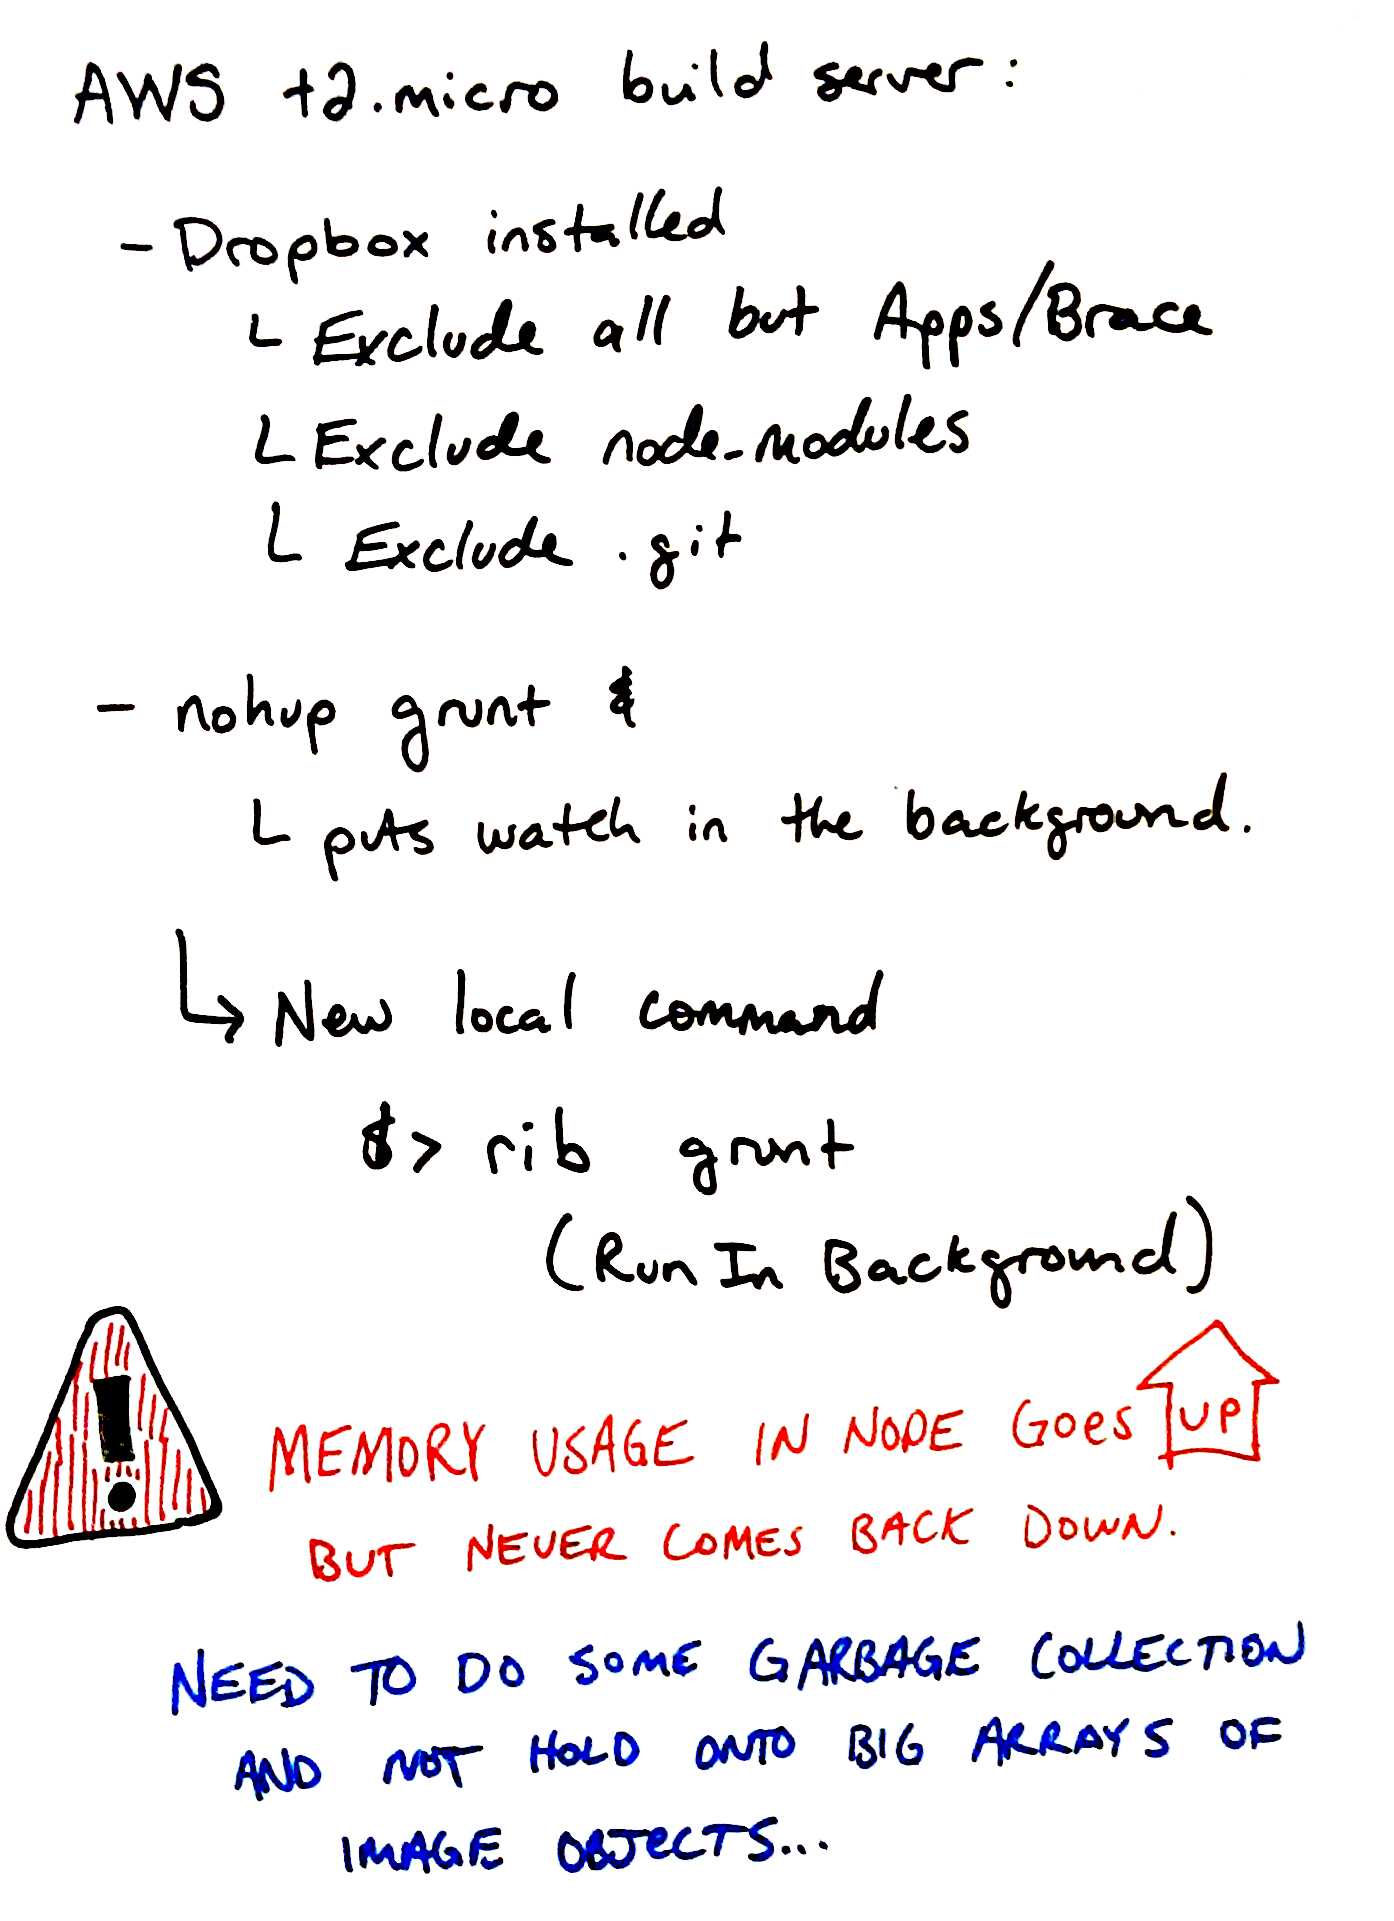 AWS t2.micro build server:
- Dropbox installed
└ Exclude all but Apps/Brace
└ Exclude node_modules
└ Exclude .git
- nohup grunt &
└ puts watch in the background.
↳ New local command
$> rib grunt
(Run In Background)
MEMORY USAGE IN NODE GOES UP
BUT NEVER COMES BACK DOWN.
NEED TO DO SOME GARBAGE COLLECTION
AND NOT HOLD ONTO BIG ARRAYS OF
IMAGE OBJECTS...